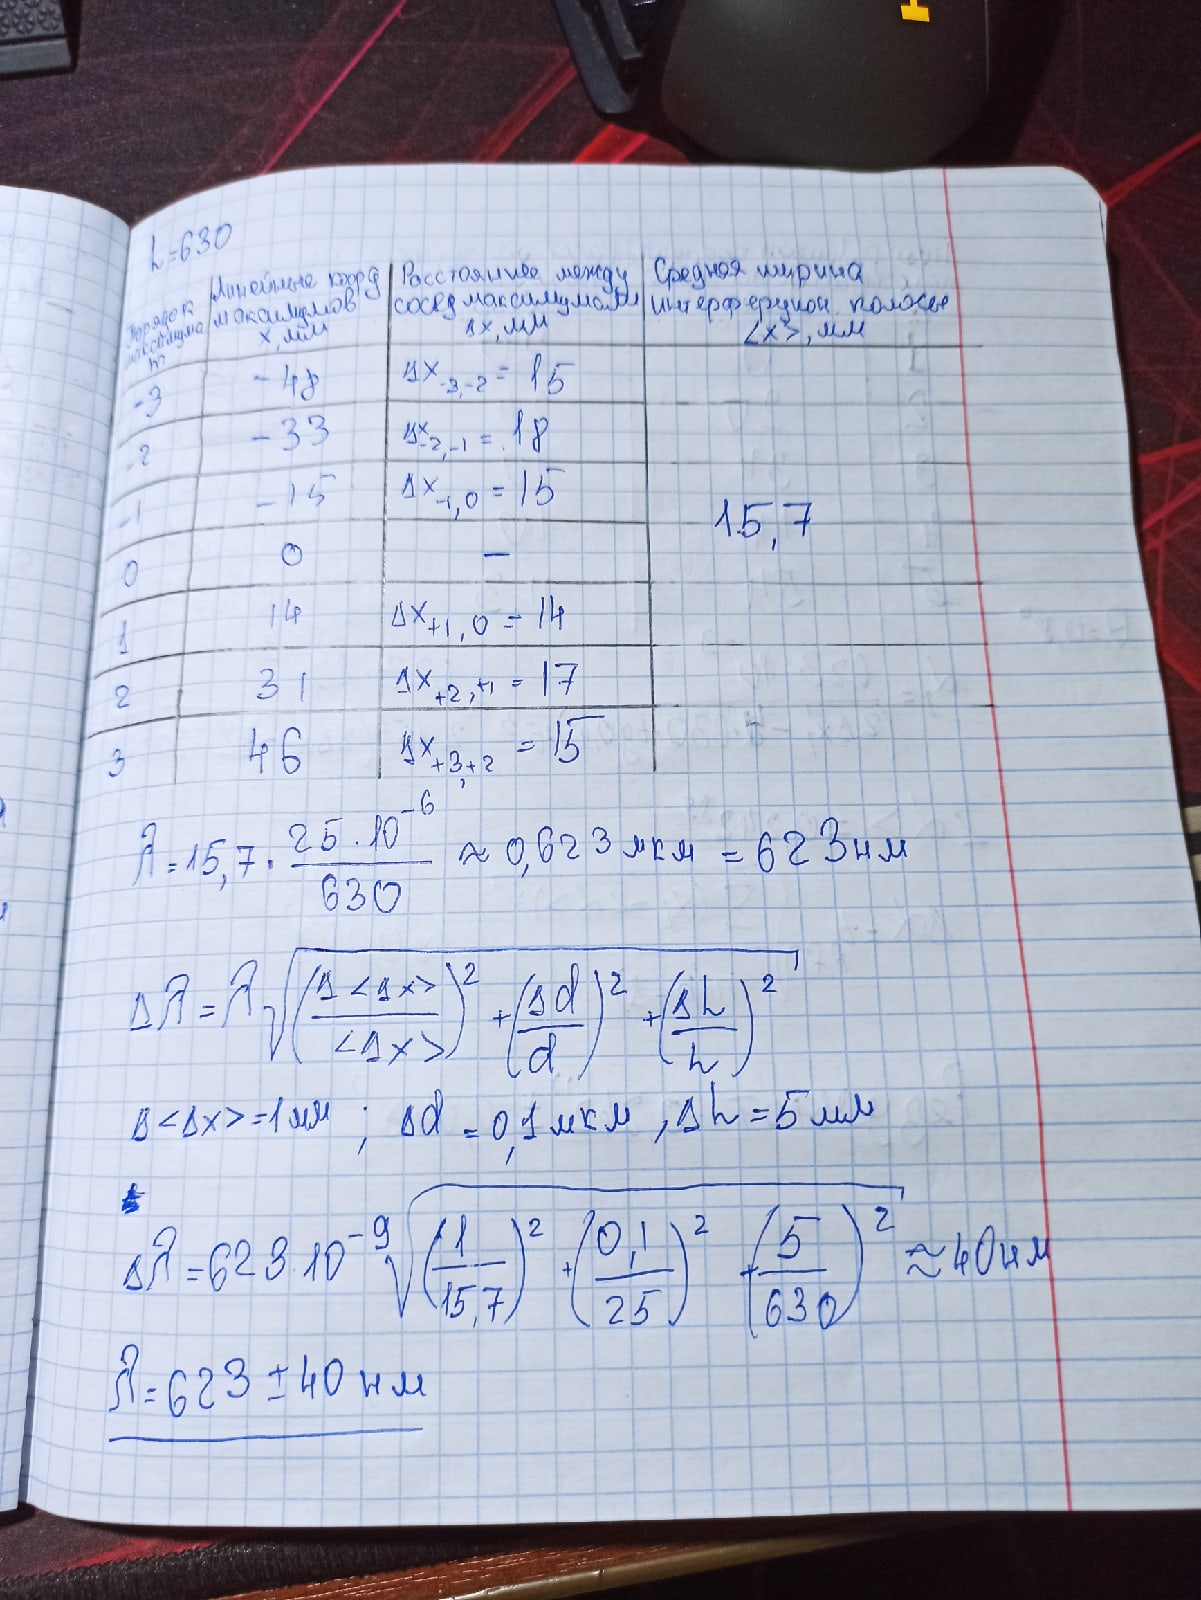 L=630
Порядок максимума m
Линейные коорд максимумов x, мм
Расстояние между сосед максимумами Δx, мм
Средняя ширина интерференцион. полосы <x>, мм
-3 -48 Δx-3,-2 = 15
-2 -33 Δx-2,-1 = 18
-1 -15 Δx-1,0 = 15
15,7
0 0 –
1 14 Δx+1,0 = 14
2 31 Δx+2,+1 = 17
3 46 Δx+3,+2 = 15
λ = 15,7 · 25 · 10^-6 / 630 ≈ 0,623 мкм = 623 нм
Δλ = λ √((Δ<Δx> / <Δx>)^2 + (Δd / d)^2 + (ΔL / L)^2)
Δ<Δx> = 1 мм ; Δd = 0,1 мкм , ΔL = 5 мм
Δλ = 623 · 10^-9 √((1 / 15,7)^2 + (0,1 / 25)^2 + (5 / 630)^2) ≈ 40 нм
λ = 623 ± 40 нм